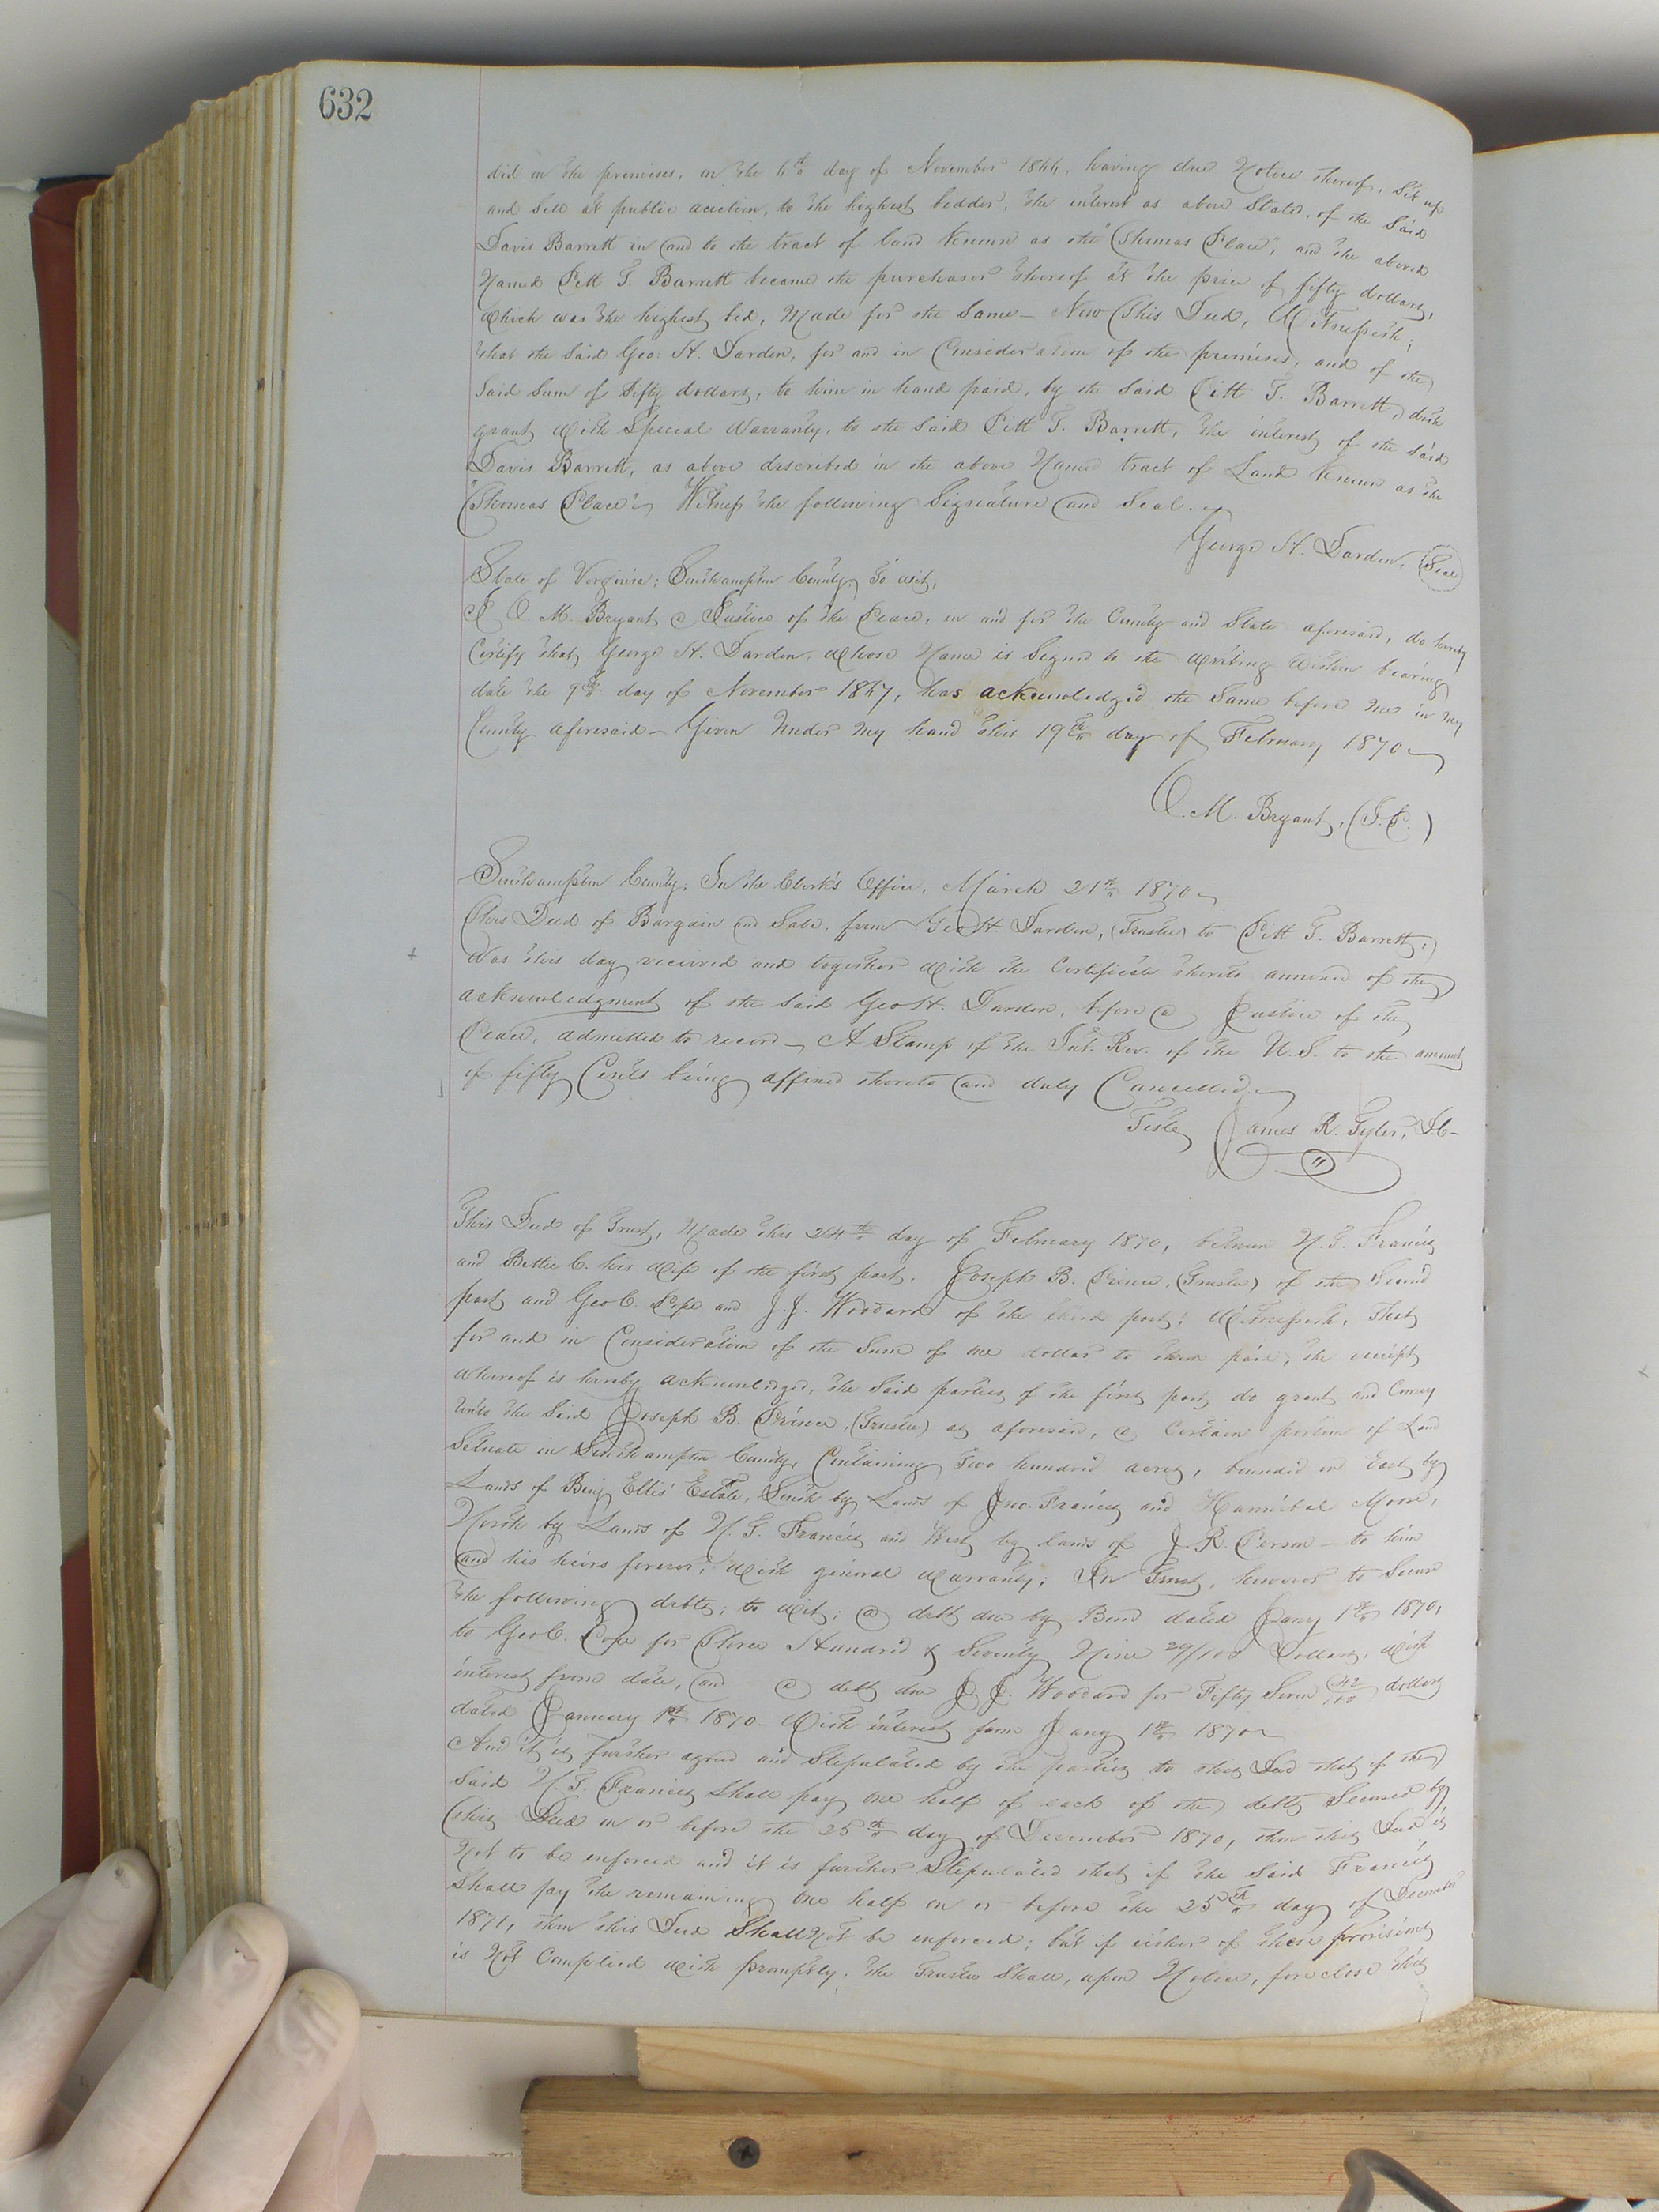 632
did on the premises, on the 6th day of November 1866, having due Notice thereof, Set up
and Sell at public auction, to the highest bidder, the interest as above Stated, of the Said
Davis Barrett in and to the tract of land Known as the "Thomas Place", and the above
Named Pitt T. Barrett became the purchaser thereof at the price of fifty dollars,
Which was the highest bid, Made for the Same – Now This Deed, Witnesseth;
that the Said Geo: H. Darden, for and in Consideration of the premises, and of the
Said Sum of Fifty dollars, to him in hand paid, by the Said Pitt T. Barrett, doth
grant With Special Warranty, to the Said Pitt T. Barrett, the interest of the Said
Davis Barrett, as above described in the above Named tract of Land Known as the
"Thomas Place" Witness the following Signature and Seal.
George H. Darden, (Seal)
State of Virginia; Southampton County, To wit,
I O. M. Bryant a Justice of the Peace, in and for the County and State aforesaid, do hereby
Certify that George H. Darden, Whose Name is Signed to the Writing Within bearing
date the 9th day of November 1867, has acknowledged the Same before me in my
County aforesaid – Given Under My hand this 19th day of February 1870
O. M. Bryant, (J.P.)
Southampton County, In the Clerk's Office, March 21st 1870
This Deed of Bargain and Sale, from Geo H. Darden, (Trustee) to Pitt T. Barrett,
Was this day received and together With the Certificate thereto annexed of the
acknowledgment of the Said Geo H. Darden, before a Justice of the
Peace, admitted to record – A Stamp of the Int. Rev. of the U.S. to the amount
of fifty Cents being affixed thereto and duly Cancelled.
Teste James R. Tyler, DC
This Deed of Trust, Made this 24th day of February 1870, between N. T. Francis
and Bettie C. his Wife of the first part, Joseph B. Prince, (Trustee) of the Second
part and Geo C. Pope and J. J. Woodard of the third part; Witnesseth, That
for and in Consideration of the Sum of one dollar to them paid, the receipt
Whereof is hereby acknowledged, the Said parties of the first part do grant and Convey
Unto the Said Joseph B. Prince, (Trustee) as aforesaid, a Certain portion of Land
Situate in Southampton County, Containing Two hundred acres, bounded on East by
Lands of Benj Ellis' Estate, South by Lands of Jno. Francis and Hannibal Moore,
North by Lands of N. T. Francis and West by lands of J. R. Person – to him
and his heirs forever, With general Warranty; In Trust, however to Secure
the following debts; to Wit; a debt due by Bond dated Jany 1st 1870,
to Geo C. Pope for Three Hundred & Seventy Nine 29/100 Dollars, With
interest from date, and a debt due J. J. Woodard for Fifty Seven 42/100 dollars
dated January 1st 1870 – With interest from Jany 1st 1870
And it is further agreed and Stipulated by the parties to this Deed that if the
Said N. T. Francis Shall pay one half of each of the debts Secured by
this Deed on or before the 25th day of December 1870, then this Deed is
Not to be enforced and it is further Stipulated that if the Said Francis
Shall pay the remaining one half on or before the 25th day of December
1871, then this Deed Shall Not be enforced; but if either of these provisions
is Not Complied With promptly, the Trustee Shall, upon Notice, foreclose this